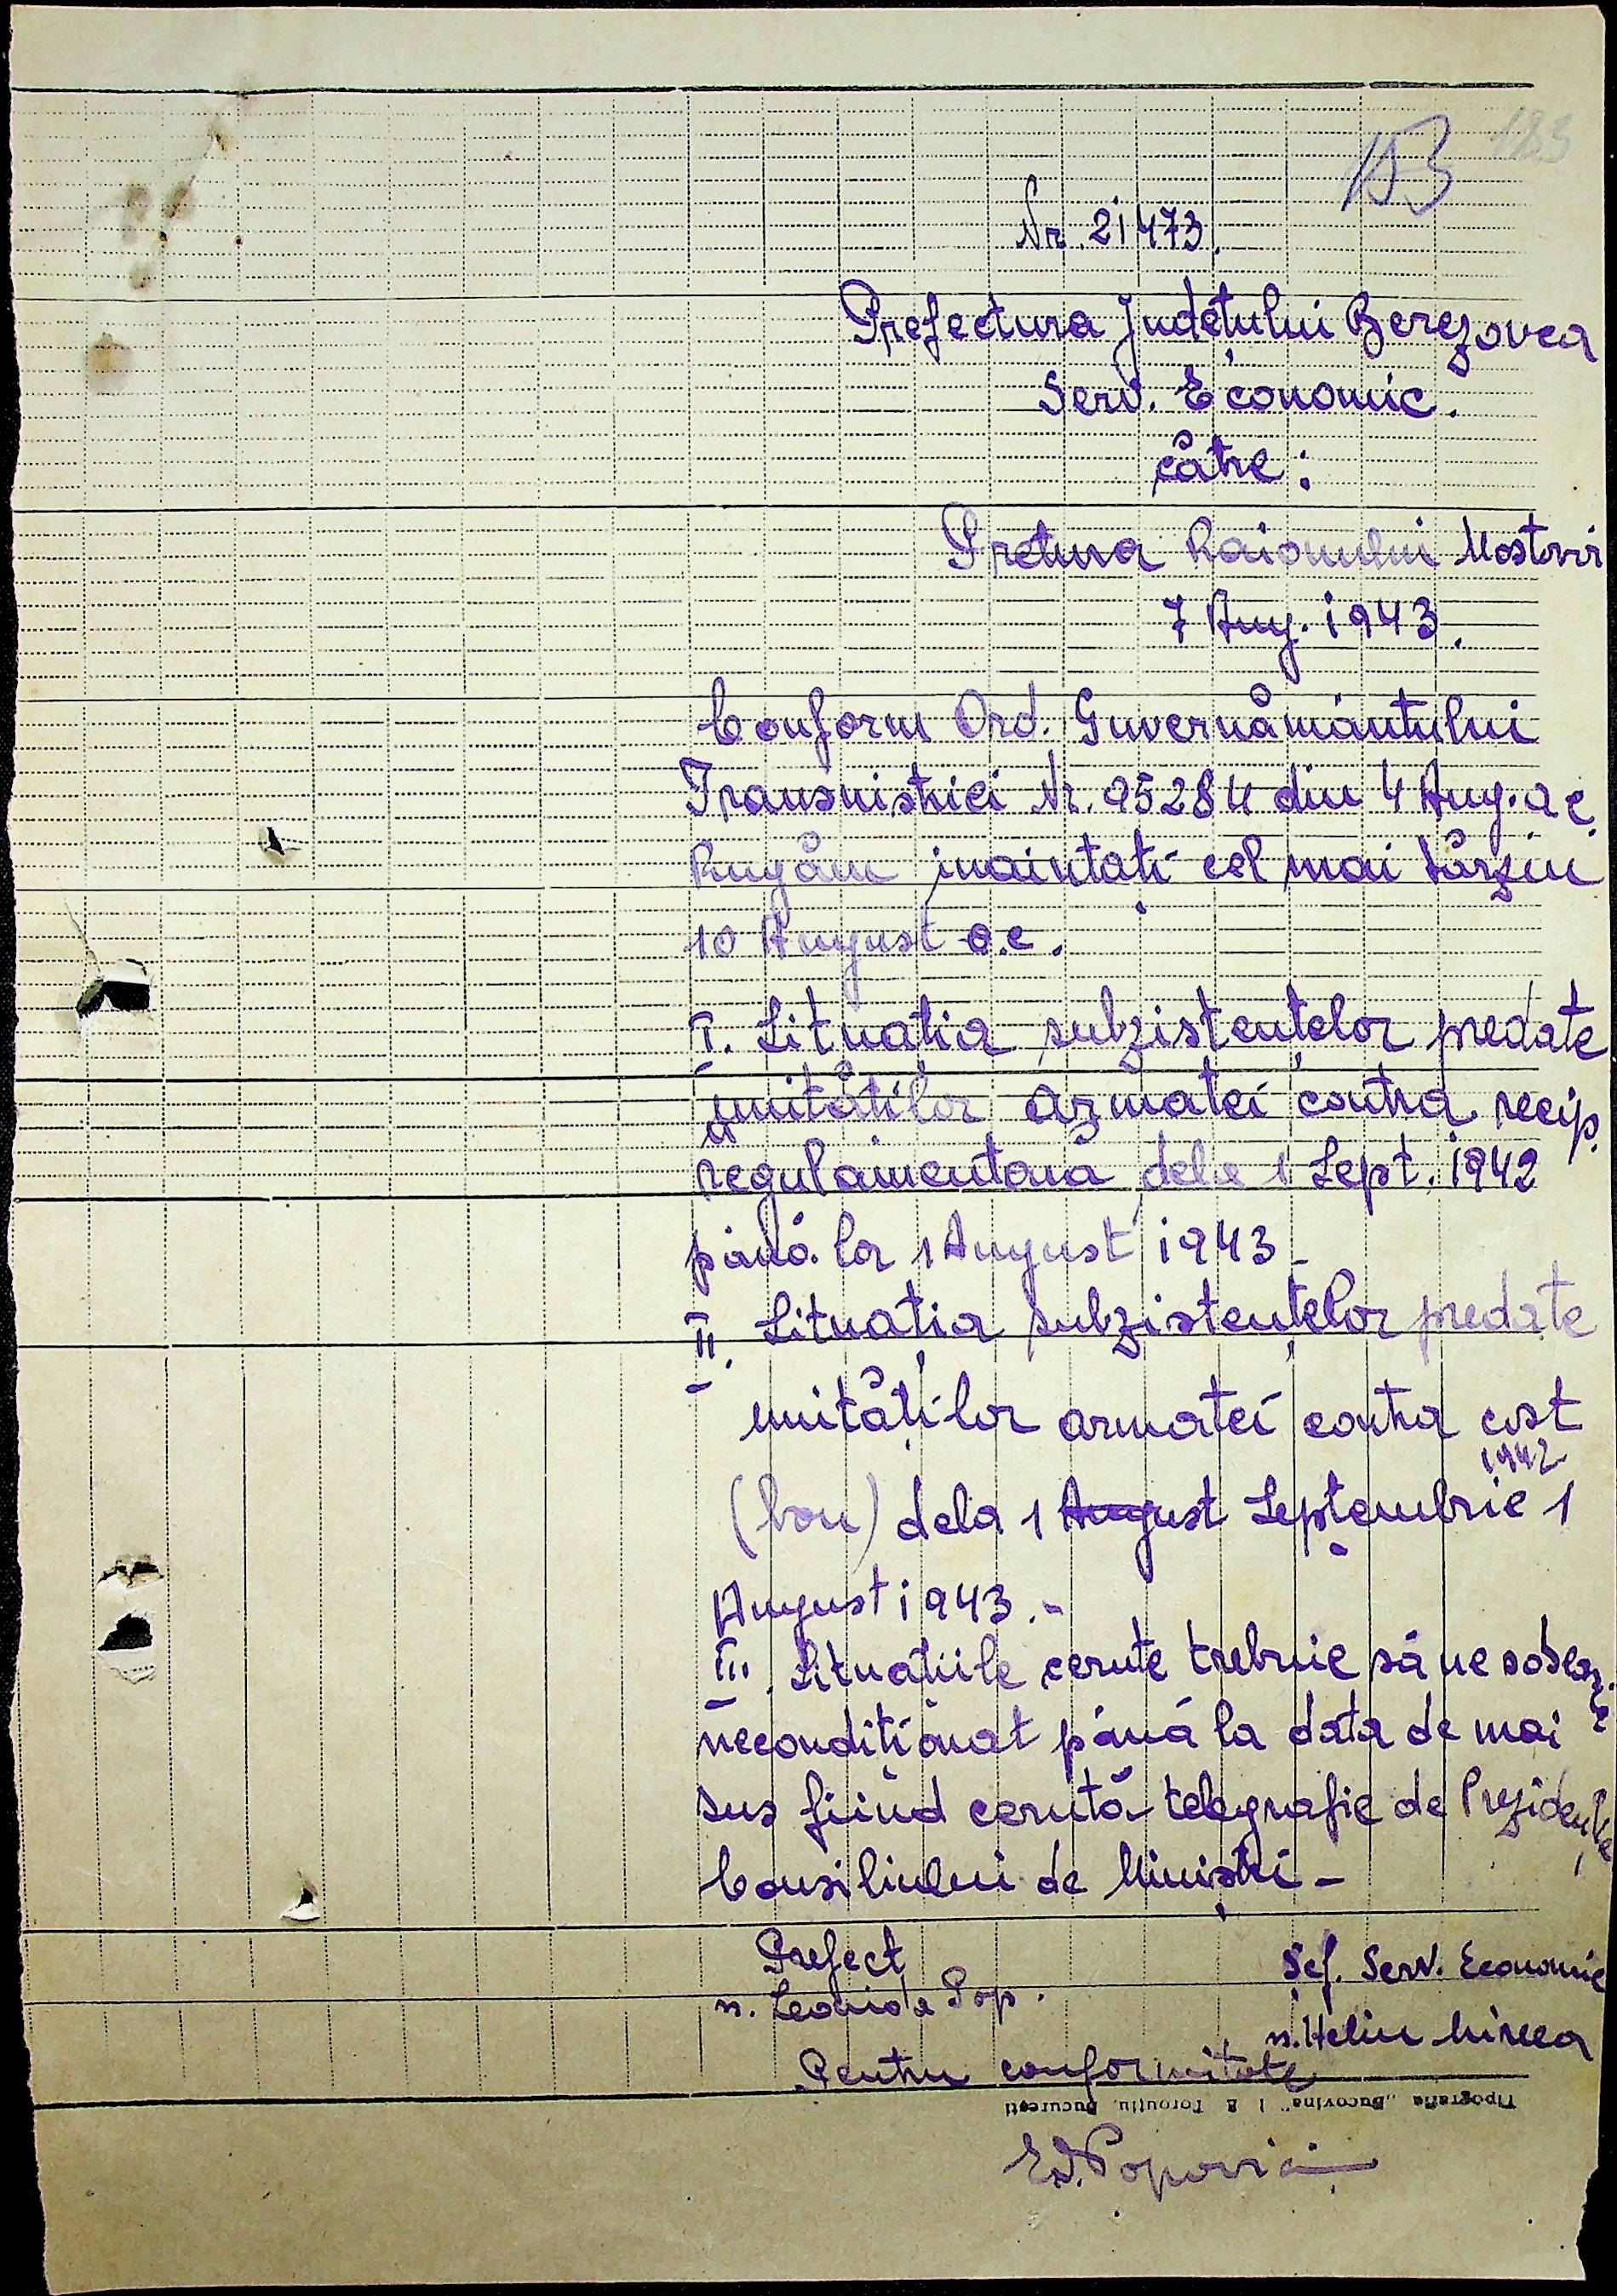 123
Nr. 21473.
Prefectura Județului Berezovca
Serv. Economic.
către:
Pretura Raionului Mostovoi
7 Aug. 1943.
Conform Ord. Guvernământului
Transnistriei Nr. 95284 din 4 Aug. a c.
Rugăm înaintați cel mai târziu
10 August a.c.
I. Situația subzistențelor predate
unităților armatei contra recip.
regulamentară dela 1 Sept. 1942
până la 1 August 1943 -
II. Situația subzistențelor predate
unităților armatei contra cost
1942
(bon) dela 1 August Septembrie 1
August 1943.-
III. Situațiile cerute trebuie să ne soseaz.
necondiționat până la data de mai
sus fiind cerută telegrafic de Prezidenția
Consiliului de Miniștri -
Prefect
n. Leonida Pop.
Șef. Serv. Economic
n. Heliu Mircea
Pentru conformitate
Tipografia „Bucovina" I. E. Torouțiu, București
Popovici